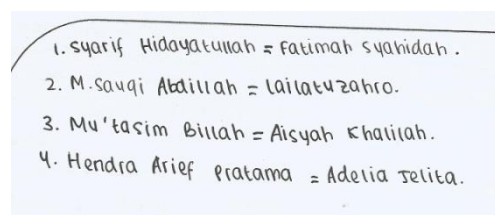 1. Syarif Hidayatullah = Fatimah Syahidah.
2. M. Sauqi Abdillah = Lailatuzahro.
3. Mu'tasim Billah = Aisyah Khalilah.
4. Hendra Arief Pratama = Adelia Jelita.